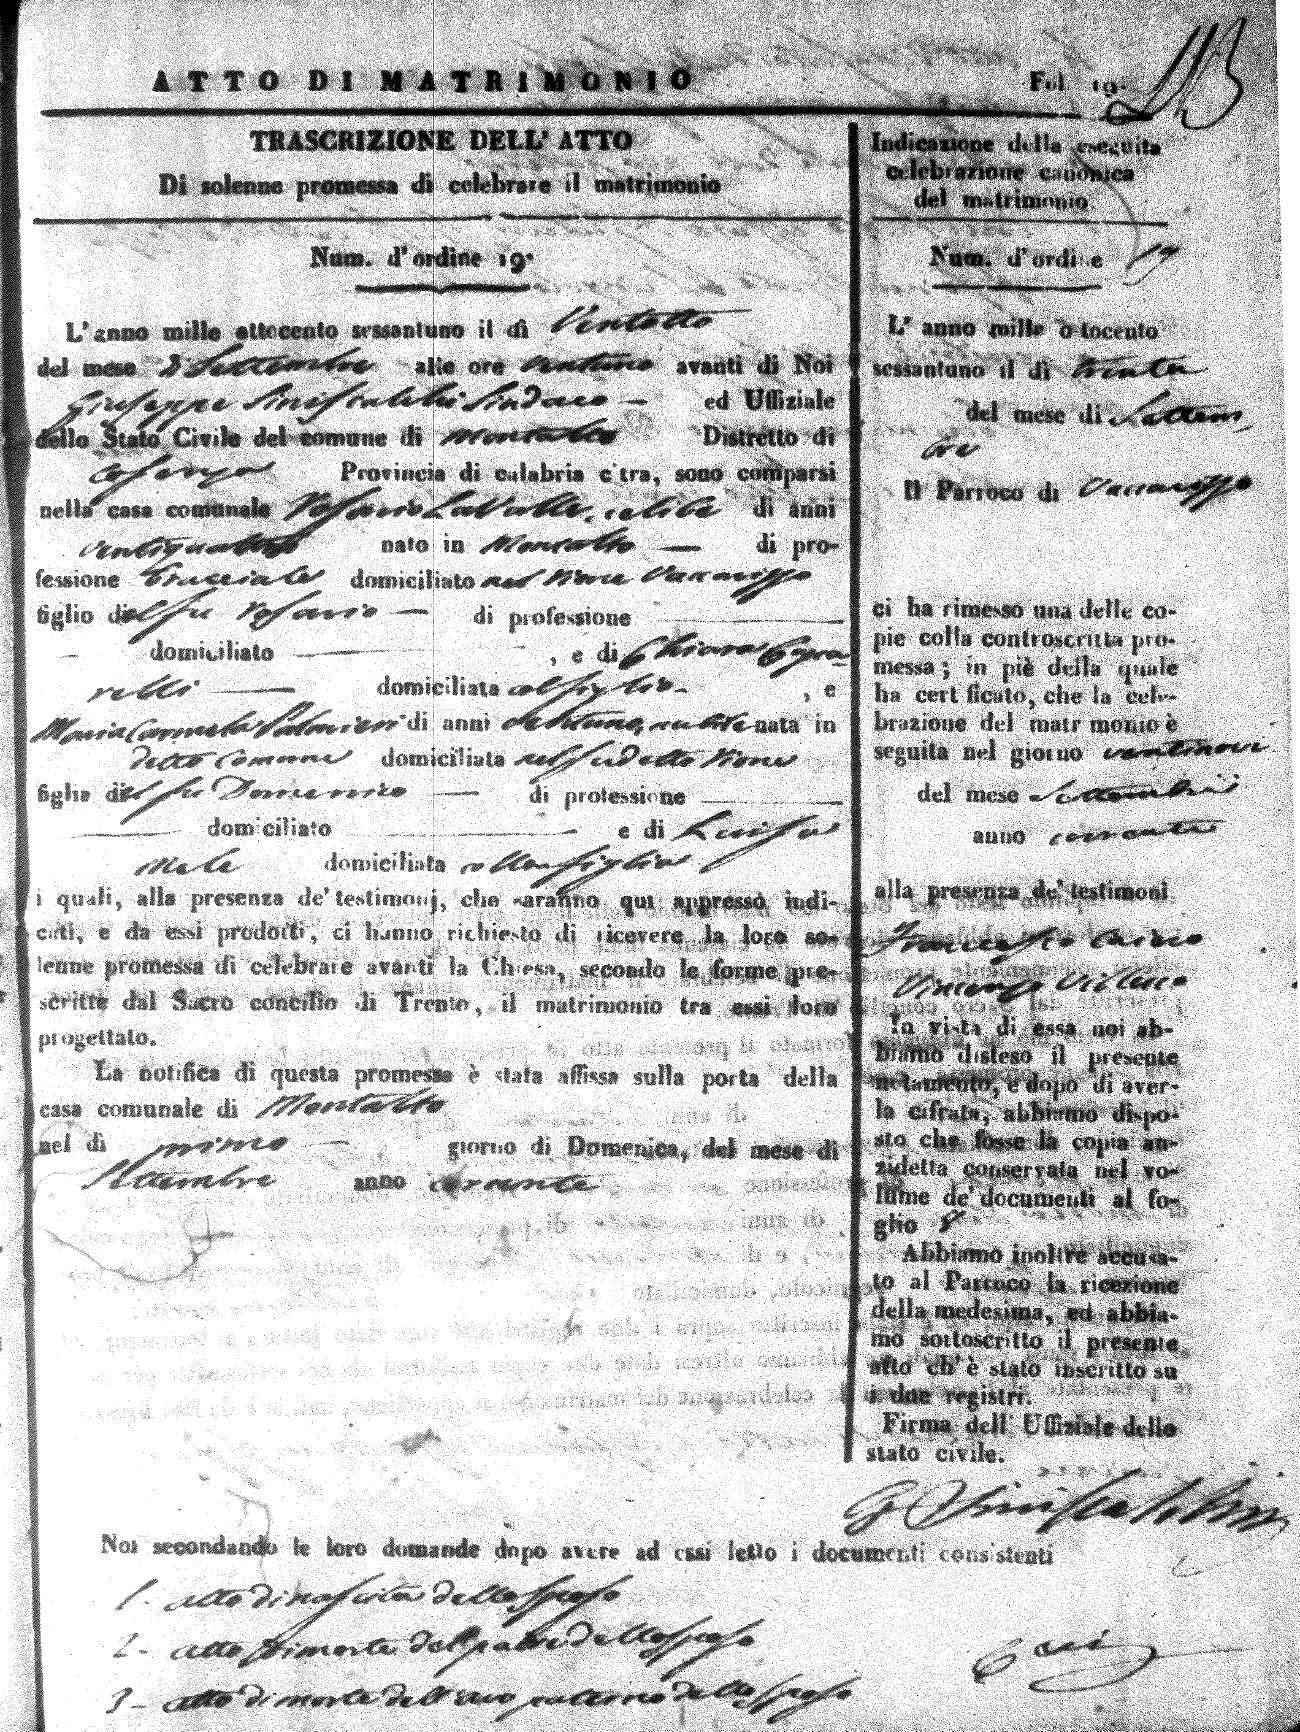 ATTO DI MATRIMONIO
Fol 19.
113
TRASCRIZIONE DELL' ATTO
Di solenne promessa di celebrare il matrimonio
Num. d' ordine 19.
L' anno mille ottocento sessantuno il dì Ventotto
del mese di Settembre alle ore ventuno avanti di Noi
Giuseppe Siniscalchi Sindaco — ed Uffiziale
dello Stato Civile del comune di Montalto Distretto di
Cosenza Provincia di calabria citra, sono comparsi
nella casa comunale Rosario La Valle, celibe di anni
ventiquattro nato in Montalto — di pro-
fessione Bracciale domiciliato nel Rione Vaccarizzo
figlio del fu Rosario — di professione
domiciliato , e di Chiara
relli — domiciliata col figlio. , e
Maria Carmela Palmieri di anni ventuno, nubile nata in
detto Comune domiciliata nel sudetto Rione
figlia del fu Domenico — di professione
domiciliato e di Luisa
Mele domiciliata colla figlia
i quali, alla presenza de' testimonj, che saranno qui appresso indi-
cati, e da essi prodotti, ci hanno richiesto di ricevere la loro so-
lenne promessa di celebrare avanti la Chiesa, secondo le forme pre-
scritte dal Sacro concilio di Trento, il matrimonio tra essi loro
progettato.
La notifica di questa promessa è stata affissa sulla porta della
casa comunale di Montalto
nel dì primo — giorno di Domenica, del mese di
Settembre anno corrente
Noi secondando le loro domande dopo avere ad essi letto i documenti consistenti
1- atto di nascita dello sposo
2- atto di morte del padre dello sposo
3- atto di morte dell'avo paterno dello sposo
Indicazione della eseguita
celebrazione canonica
del matrimonio.
Num. d' ordine 19
L' anno mille ottocento
sessantuno il dì trenta
del mese di Settem
bre
Il Parroco di Vaccarizzo
ci ha rimesso una delle co-
pie colla controscritta pro-
messa; in piè della quale
ha certificato, che la cele-
brazione del matrimonio è
seguita nel giorno ventinove
del mese Settembre
anno corrente
alla presenza de' testimoni
Francesco
Vincenzo
In vista di essa noi ab-
biamo disteso il presente
notamento, e dopo di aver-
la cifrata, abbiamo dispo-
sto che fosse la copia an-
zidetta conservata nel vo-
lume de' documenti al fo-
glio 8
Abbiamo inoltre accusa-
to al Parroco la ricezione
della medesima, ed abbia-
mo sottoscritto il presente
atto ch' è stato inscritto su
i due registri.
Firma dell' Uffiziale dello
stato civile.
G Siniscalchi